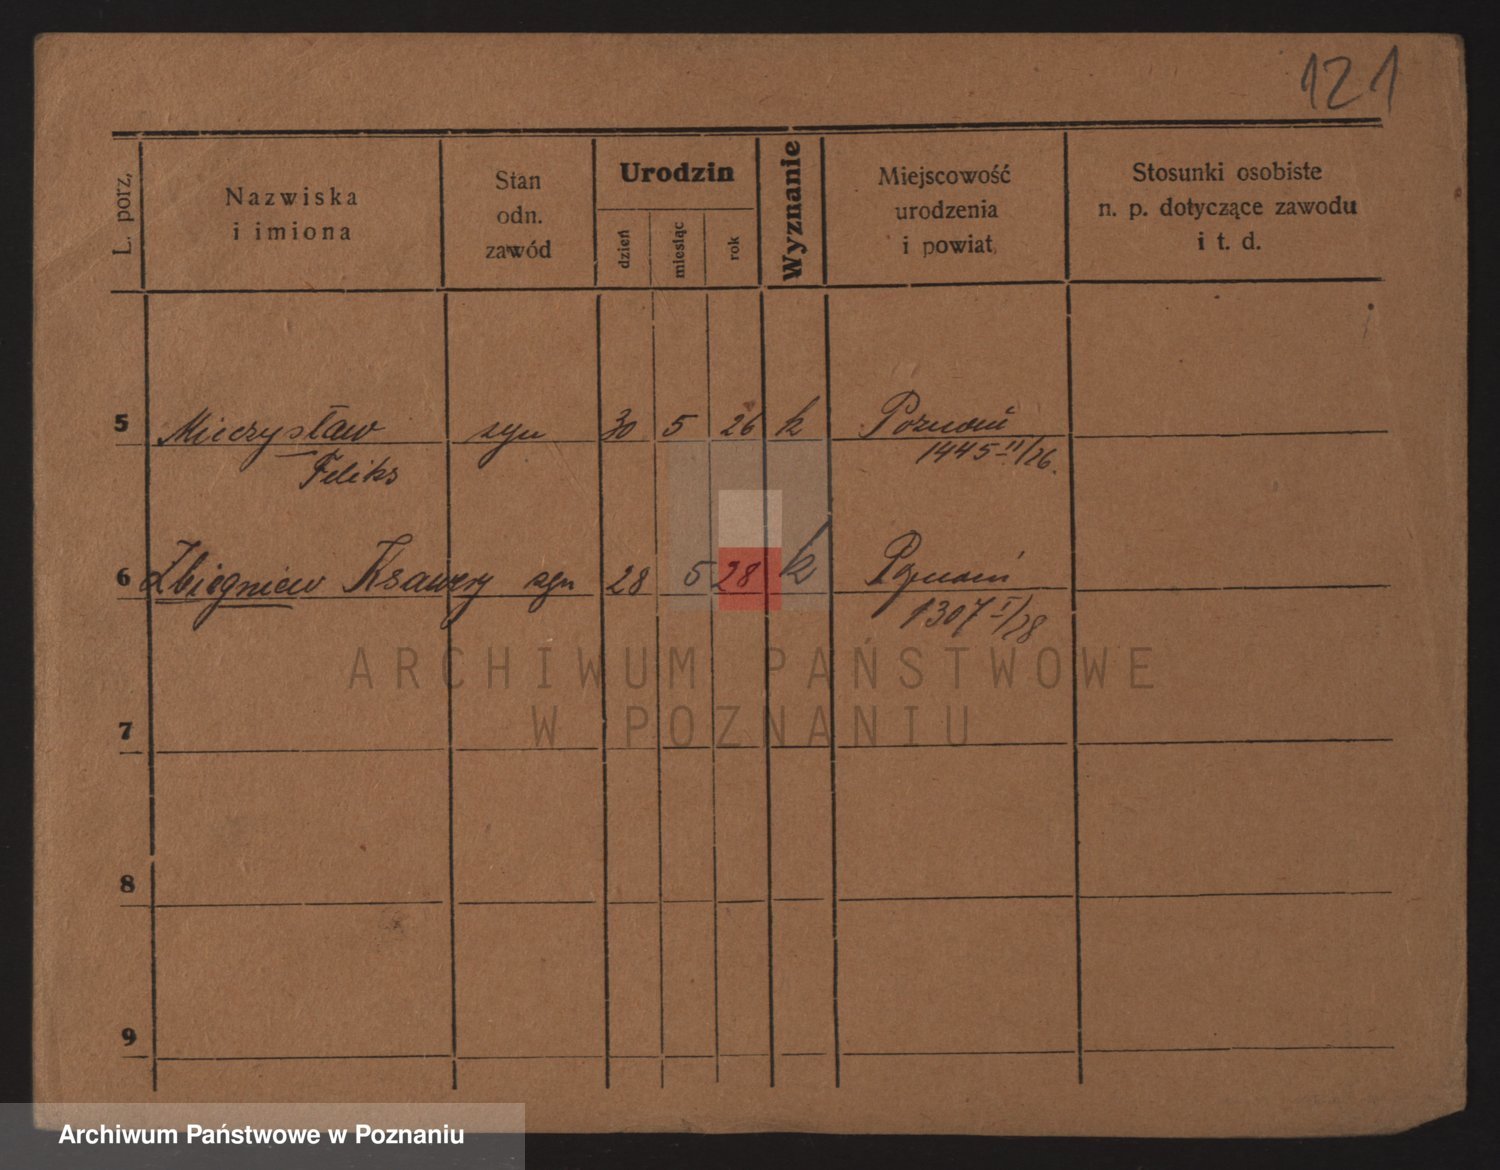 121
L. porz,
Nazwiska
i imiona
Stan
odn.
zawód
Urodzin
dzień
miesiąc
rok
Wyznanie
Miejscowość
urodzenia
i powiat
Stosunki osobiste
n. p. dotyczące zawodu
i t. d.
5 Mieczysław syn 30 5 26 k Poznań
Feliks 1445 II/26.
6 Zbigniew Ksawery syn 28 5 28 k Poznań
1307 I/28
ARCHIWUM PAŃSTWOWE
W POZNANIU
7
8
9
Archiwum Państwowe w Poznaniu